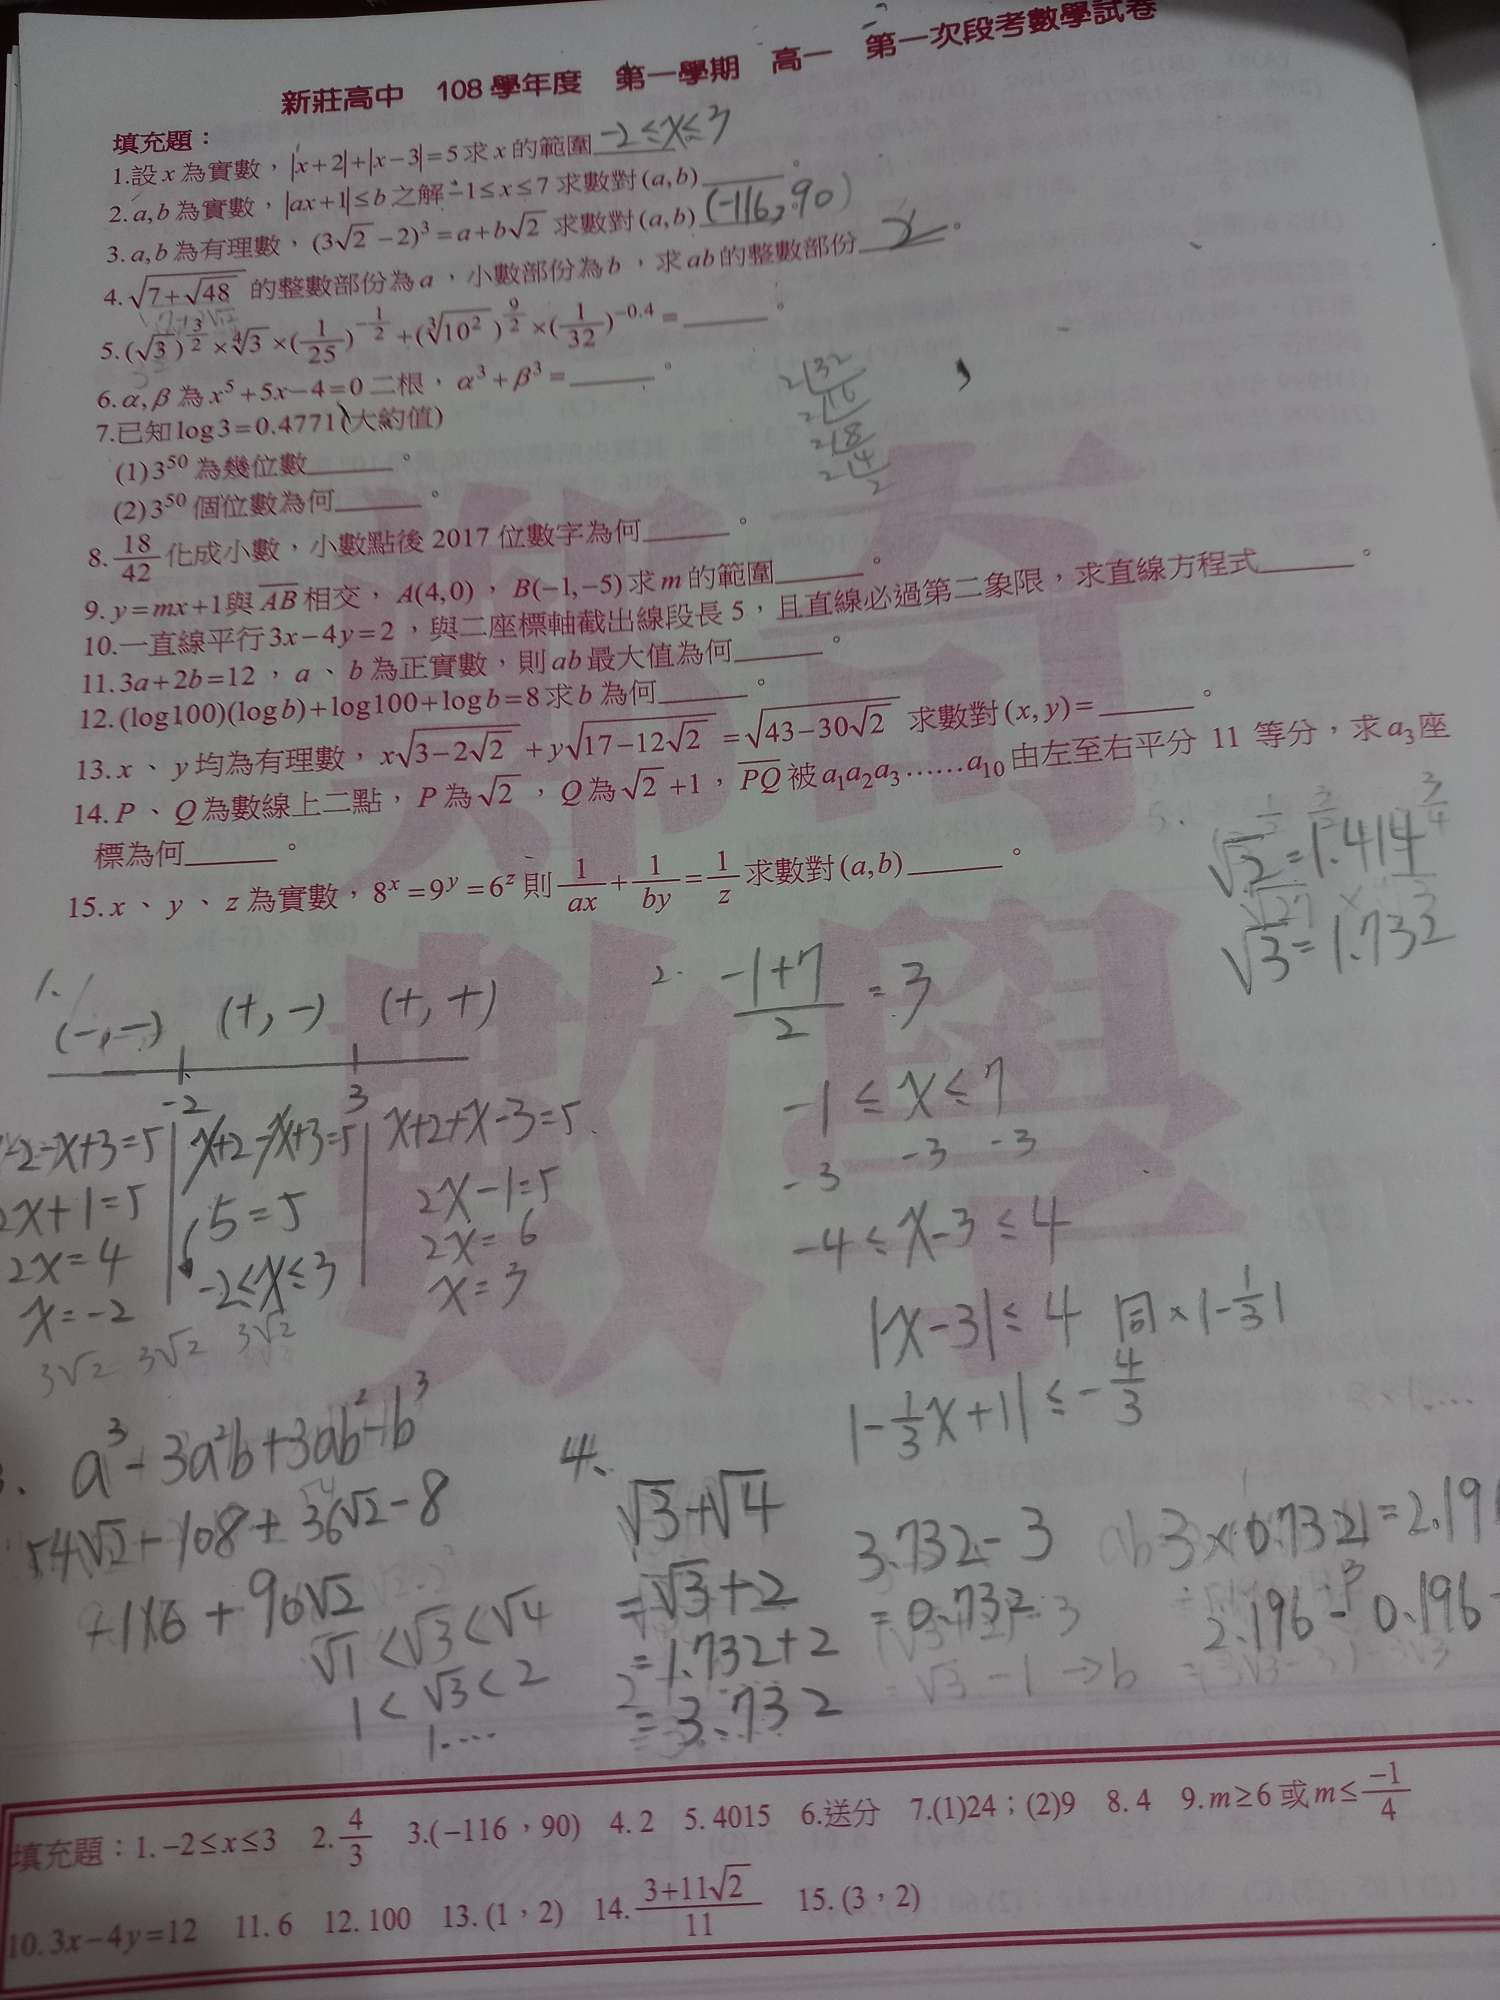 新莊高中 108 學年度 第一學期 高一 第一次段考數學試卷
填充題：
1.設 x 為實數，|x+2|+|x−3|=5 求 x 的範圍 −2≤x≤3
2. a,b 為實數，|ax+1|≤b 之解 −1≤x≤7 求數對 (a,b)______。
3. a,b 為有理數，(3√2−2)³=a+b√2 求數對 (a,b) (−116,90)
4. √(7+√48) 的整數部份為 a，小數部份為 b，求 ab 的整數部份 2。
5. (√3)^(3/2)×⁴√3×(1/25)^(−1/2)+(³√10²)^(9/2)×(1/32)^(−0.4)=______。
6. α,β 為 x⁵+5x−4=0 二根，α³+β³=______。
7.已知 log3=0.4771(大約值)
(1) 3⁵⁰ 為幾位數______。
(2) 3⁵⁰ 個位數為何______。
8. 18/42 化成小數，小數點後 2017 位數字為何______。
9. y=mx+1與 AB 相交，A(4,0)，B(−1,−5) 求 m 的範圍______。
10.一直線平行 3x−4y=2，與二座標軸截出線段長 5，且直線必過第二象限，求直線方程式______。
11. 3a+2b=12，a、b 為正實數，則 ab 最大值為何______。
12. (log100)(logb)+log100+logb=8 求 b 為何______。
13. x、y 均為有理數，x√(3−2√2)+y√(17−12√2)=√(43−30√2) 求數對 (x,y)=______。
14. P、Q 為數線上二點，P 為 √2，Q 為 √2+1，PQ 被 a₁a₂a₃……a₁₀ 由左至右平分 11 等分，求 a₃ 座
標為何______。
15. x、y、z 為實數，8ˣ=9ʸ=6ᶻ 則 1/ax+1/by=1/z 求數對 (a,b)______。
2|32
2|16
2|8
2|4
2
√2=1.414
√3=1.732
1.
(−,−) (+,−) (+,+)
−2 3
-2-x+3=5 | x+2-x+3=5 | x+2+x-3=5
2x+1=5 5=5 2x-1=5
2x=4 -2≤x≤3 2x=6
x=-2 x=3
3√2 3√2 3√2
2. (−1+7)/2 = 3
−1 ≤ x ≤ 7
−3 −3 −3
−4 ≤ x−3 ≤ 4
|x−3| ≤ 4 同×|−1/3|
|−1/3x+1| ≤ −4/3
a³−3a²b+3ab²−b³
54√2−108+36√2−8
−116+90√2
√1<√3<√4
1<√3<2
1.…
4.
√3+√4
=√3+2
=1.732+2
=3.732
3.732−3
=0.732
√3−1→b
ab 3×0.732=2.19
2.196 0.196
填充題：1. −2≤x≤3 2. 4/3 3.(−116，90) 4. 2 5. 4015 6.送分 7.(1)24；(2)9 8. 4 9. m≥6 或 m≤−1/4
10. 3x−4y=12 11. 6 12. 100 13. (1，2) 14. (3+11√2)/11 15. (3，2)